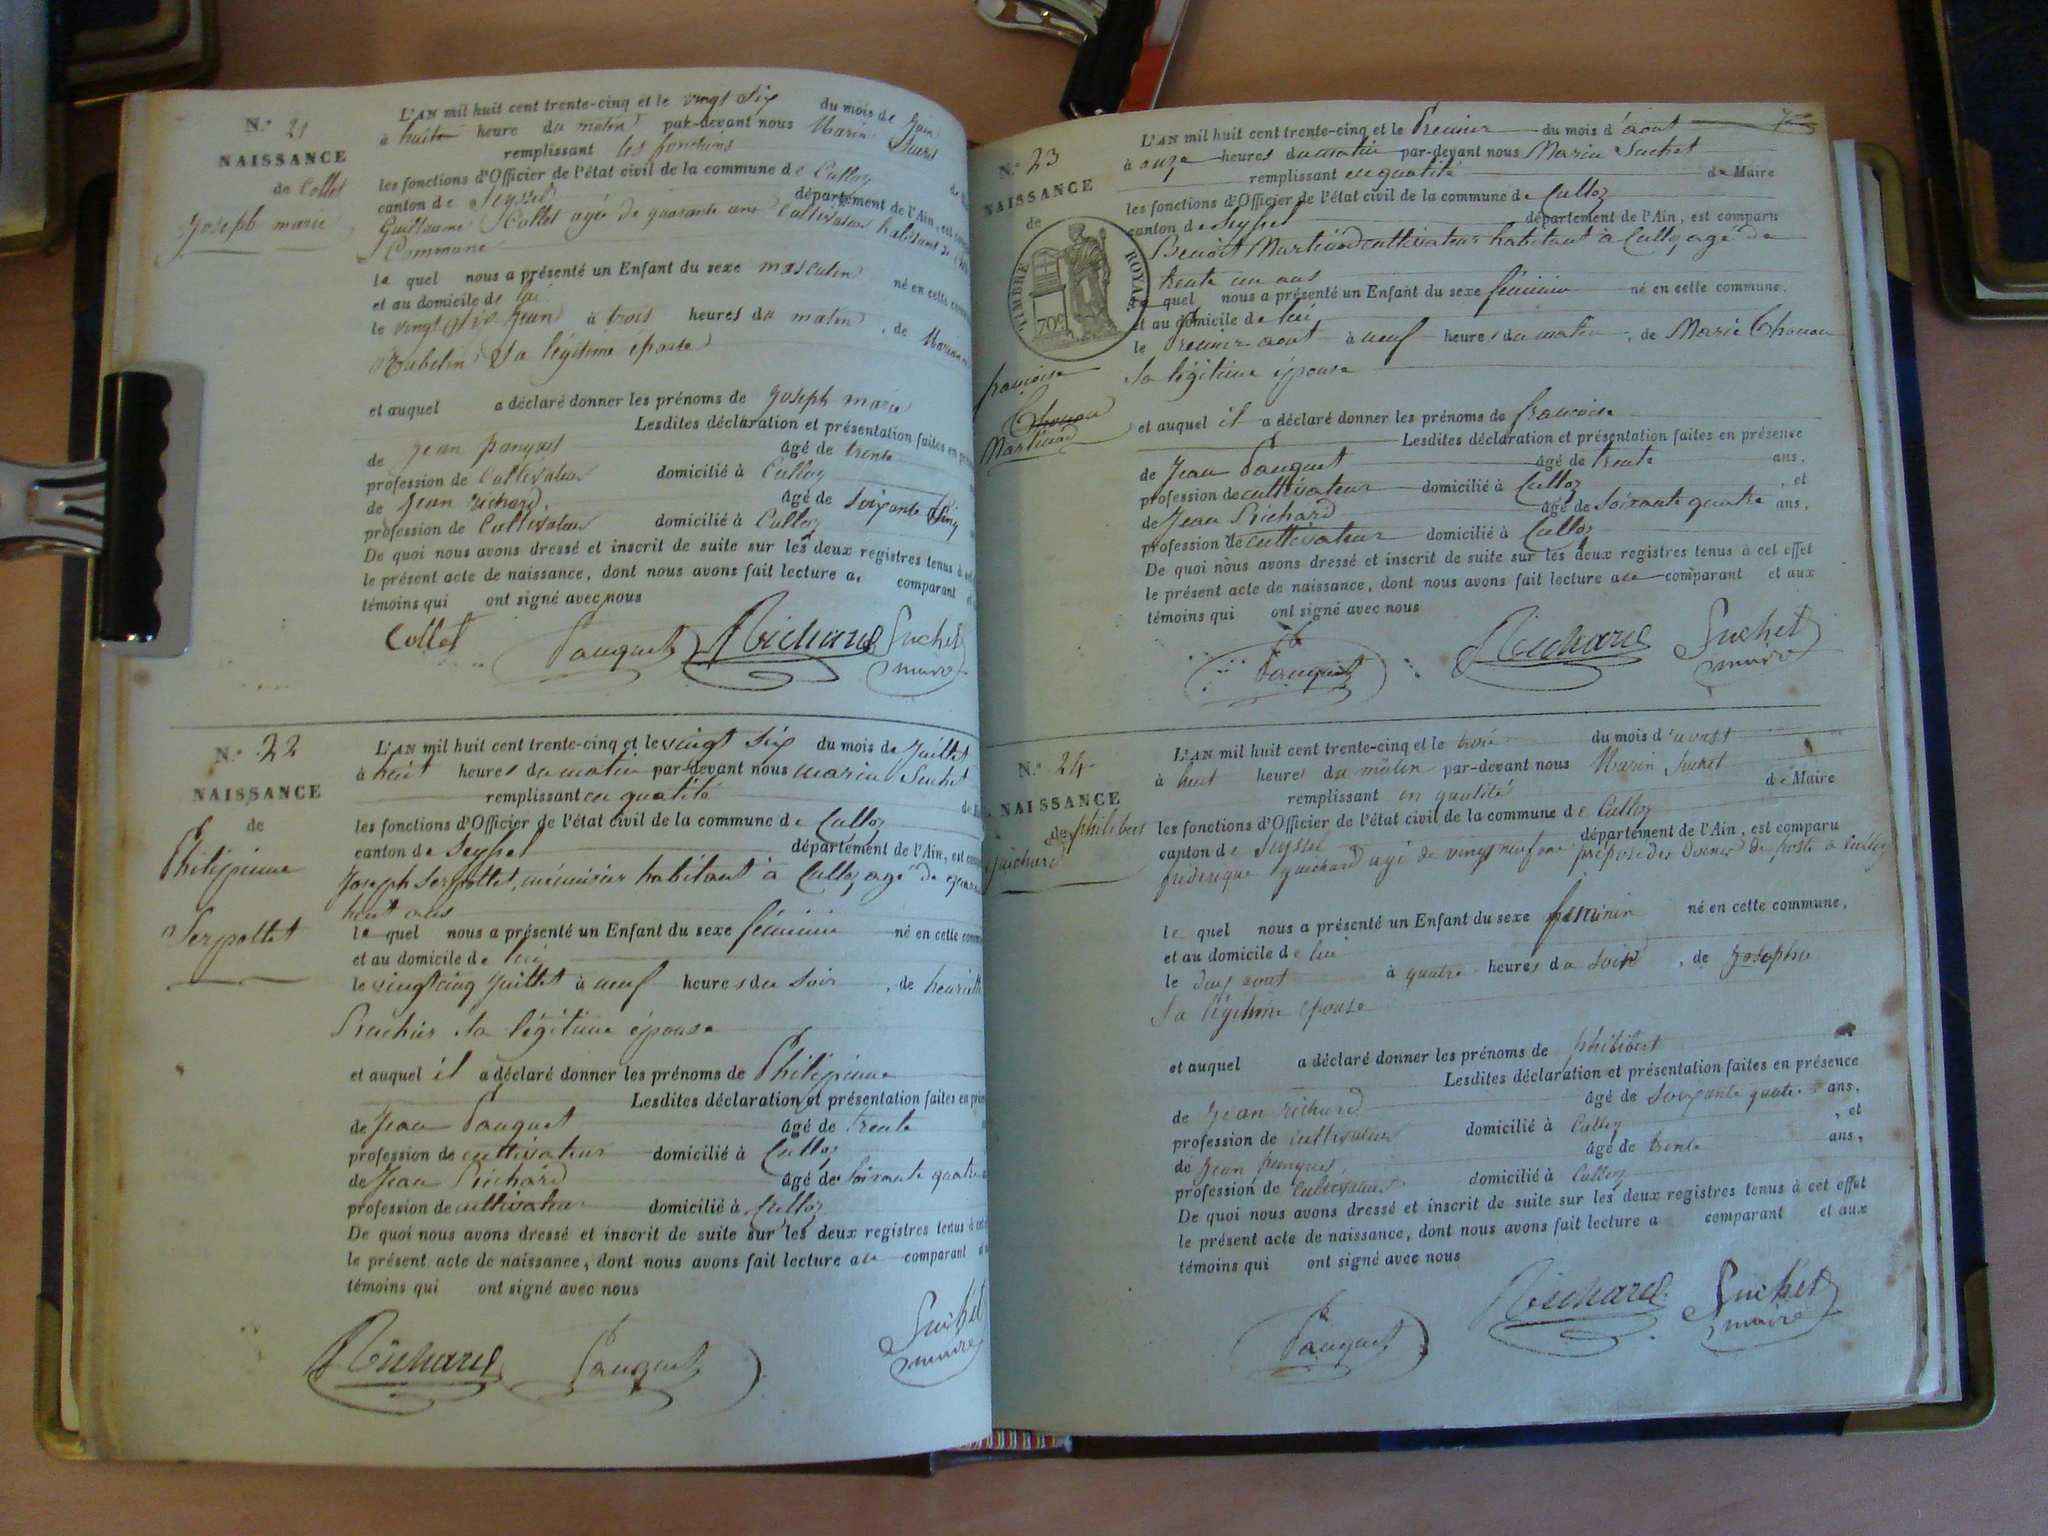 N.° 21
NAISSANCE
de Collet
Joseph marie
L'AN mil huit cent trente-cinq et le vingt six du mois de Juin
à huit heure du matin par-devant nous Marin
remplissant les fonctions
les fonctions d'Officier de l'état civil de la commune de Culloz
canton de Seyssel département de l'Ain, est
Guillaume Collet agé de quarante ans Cultivateur habitant
Commune
le quel nous a présenté un Enfant du sexe masculin né en cette
et au domicile de lui
le vingt six Juin à trois heures du matin, de
Rubelin Sa légitime épouse
et auquel a déclaré donner les prénoms de Joseph marie
Lesdites déclaration et présentation faites en
de Jean pauquet âgé de trente
profession de Cultivateur domicilié à Culloz
de Jean richard, âgé de Soixante Cinq
profession de Cultivateur domicilié à Culloz
De quoi nous avons dressé et inscrit de suite sur les deux registres tenus à
le présent acte de naissance, dont nous avons fait lecture a, comparant
témoins qui ont signé avec nous
Collet Pauquet Richard Suchet
maire
N.° 22
NAISSANCE
de
Philipinne
Serpollet
L'AN mil huit cent trente-cinq et le vingt six du mois de Juillet
à huit heures du matin par-devant nous marin Suchet
remplissant en qualité
les fonctions d'Officier de l'état civil de la commune de Culloz
canton de Seyssel département de l'Ain, est
Joseph Serpollet, menuisier habitant à Culloz agé de
huit ans
le quel nous a présenté un Enfant du sexe féminin né en cette
et au domicile de lui
le vingt cinq Juillet à neuf heures du Soir, de
sa légitime épouse
et auquel il a déclaré donner les prénoms de Philipinne
Lesdites déclaration et présentation faites en
de Jean Pauquet âgé de trente
profession de cultivateur domicilié à Culloz
de Jean Richard âgé de Soixante quatre
profession de cultivateur domicilié à Culloz
De quoi nous avons dressé et inscrit de suite sur les deux registres tenus à
le présent acte de naissance, dont nous avons fait lecture au comparant
témoins qui ont signé avec nous
Richard Pauquet Suchet
maire
N.° 23
NAISSANCE
de
TIMBRE ROYAL
70c
francoise
Thonon
Martinod
L'AN mil huit cent trente-cinq et le Premier du mois d'aout
à onze heures du matin par-devant nous Marin Suchet
remplissant en qualité de Maire
les fonctions d'Officier de l'état civil de la commune de Culloz
canton de Seyssel département de l'Ain, est comparu
Benoît Martinod cultivateur habitant à Culloz agé de
trente un ans
le quel nous a présenté un Enfant du sexe féminin né en cette commune,
et au domicile de lui
le Premier aout à neuf heures du matin, de Marie Thonon
Sa légitime épouse
et auquel il a déclaré donner les prénoms de francoise
Lesdites déclaration et présentation faites en présence
de Jean Pauquet âgé de trente ans,
profession de cultivateur domicilié à Culloz, et
de Jean Richard âgé de Soixante quatre ans,
profession de cultivateur domicilié à Culloz
De quoi nous avons dressé et inscrit de suite sur les deux registres tenus à cet effet
le présent acte de naissance, dont nous avons fait lecture au comparant et aux
témoins qui ont signé avec nous
Pauquet Richard Suchet
maire
N.° 24
NAISSANCE
de philibert
Guichard
L'AN mil huit cent trente-cinq et le trois du mois d'aoust
à huit heures du matin par-devant nous Marin Suchet
remplissant en qualité de Maire
les fonctions d'Officier de l'état civil de la commune de Culloz
canton de Seyssel département de l'Ain, est comparu
frederique guichard agé de vingt neuf ans préposé des Douanes de poste à Culloz
le quel nous a présenté un Enfant du sexe féminin né en cette commune,
et au domicile de lui
le deux aout à quatre heures du soir, de Josephe
Sa légitime épouse
et auquel a déclaré donner les prénoms de philibert
Lesdites déclaration et présentation faites en présence
de Jean richard âgé de Soixante quatre ans,
profession de cultivateur domicilié à Culloz, et
de Jean pauquet, âgé de trente ans,
profession de Cultivateur domicilié à Culloz
De quoi nous avons dressé et inscrit de suite sur les deux registres tenus à cet effet
le présent acte de naissance, dont nous avons fait lecture a comparant et aux
témoins qui ont signé avec nous
Pauquet Richard Suchet
maire